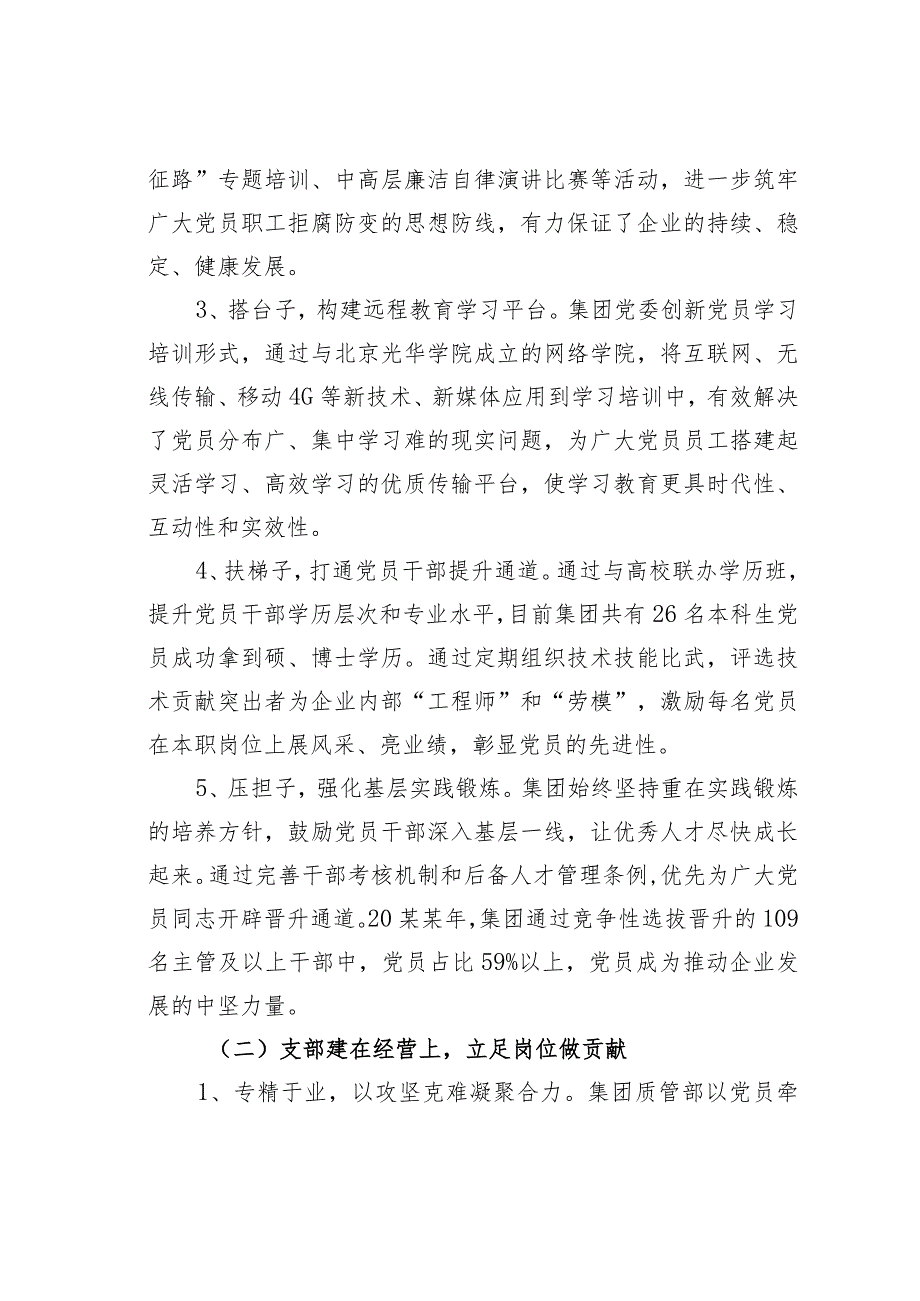 征路”专题培训、中高层廉洁自律演讲比赛等活动，进一步筑牢
广大党员职工拒腐防变的思想防线，有力保证了企业的持续、稳
定、健康发展。
3、搭台子，构建远程教育学习平台。集团党委创新党员学习
培训形式，通过与北京光华学院成立的网络学院，将互联网、无
线传输、移动 4G 等新技术、新媒体应用到学习培训中，有效解决
了党员分布广、集中学习难的现实问题，为广大党员员工搭建起
灵活学习、高效学习的优质传输平台，使学习教育更具时代性、
互动性和实效性。
4、扶梯子，打通党员干部提升通道。通过与高校联办学历班，
提升党员干部学历层次和专业水平，目前集团共有 26 名本科生党
员成功拿到硕、博士学历。通过定期组织技术技能比武，评选技
术贡献突出者为企业内部“工程师”和“劳模”，激励每名党员
在本职岗位上展风采、亮业绩，彰显党员的先进性。
5、压担子，强化基层实践锻炼。集团始终坚持重在实践锻炼
的培养方针，鼓励党员干部深入基层一线，让优秀人才尽快成长
起来。通过完善干部考核机制和后备人才管理条例,优先为广大党
员同志开辟晋升通道。20 某某年,集团通过竞争性选拔晋升的 109
名主管及以上干部中，党员占比 59%以上，党员成为推动企业发
展的中坚力量。
（二）支部建在经营上，立足岗位做贡献
1、专精于业，以攻坚克难凝聚合力。集团质管部以党员牵